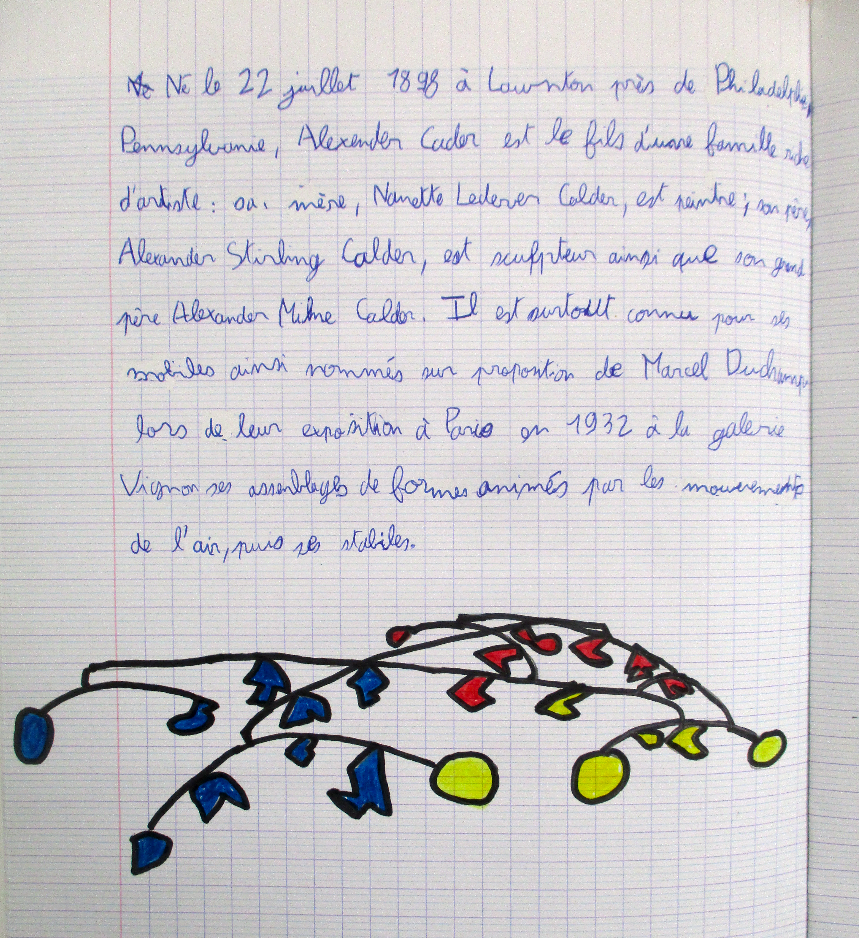 Né le 22 juillet 1898 à Lawnton près de Philadelphie,
Pennsylvanie, Alexender Cader est le fils d'une famille riche
d'artiste: sa mère, Nanette Lederer Calder, est peintre; son père,
Alexander Stirling Calder, est sculpteur ainsi que son grand
père Alexander Milne Calder. Il est surtout connu pour ses
mobiles ainsi nommés sur proposition de Marcel Duchamp
lors de leur exposition à Paris en 1932 à la galerie
Vignon ses assemblages de formes animés par les mouvements
de l'air, puis ses stabiles.